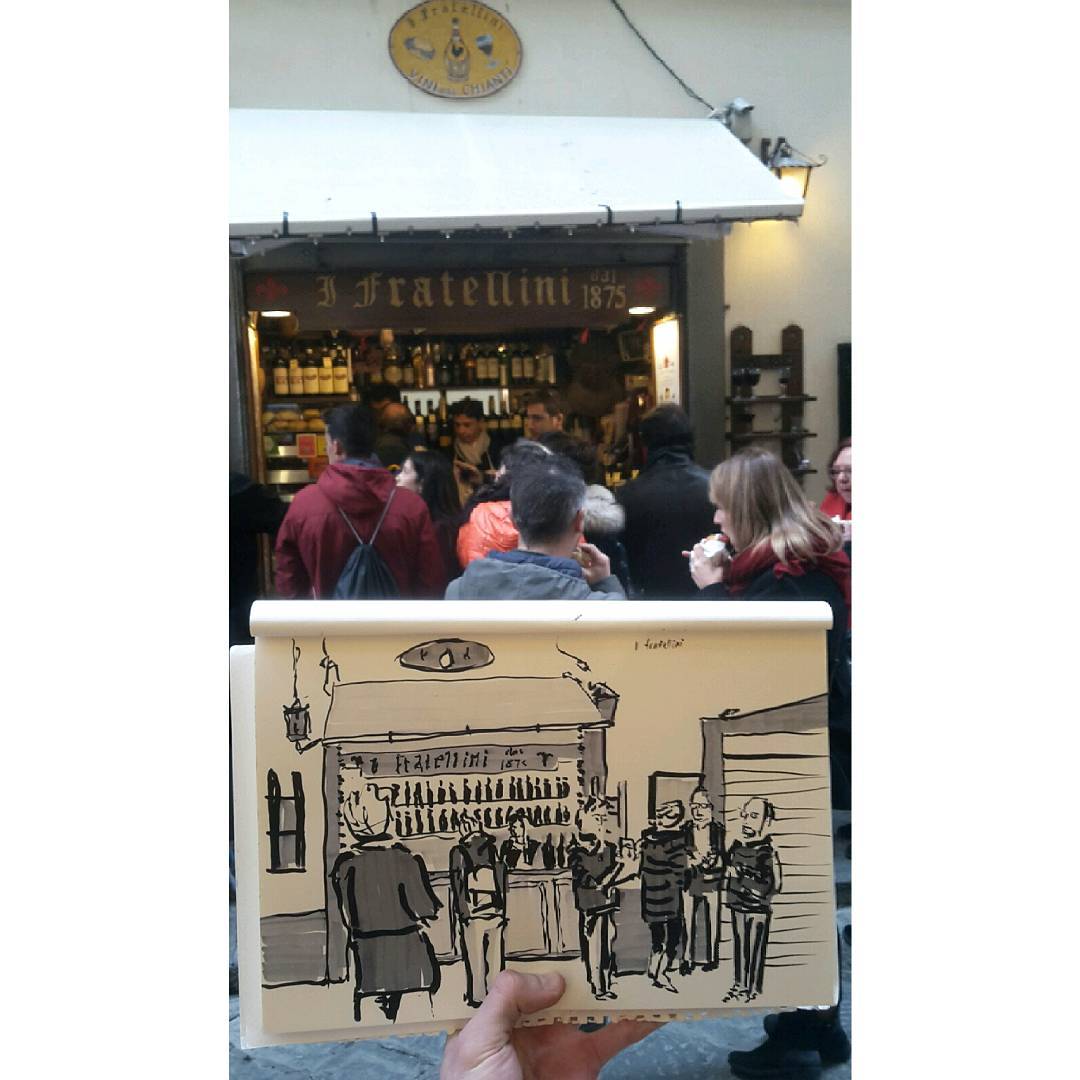 I Fratellini
VINI del CHIANTI
I Fratellini dal
1875
I fratellini
I FRATELLINI dal
1875